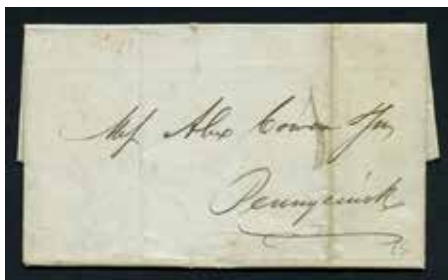 Mess Alex Cowan & Son
Pennycuick